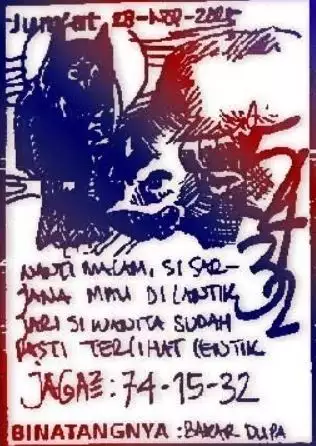 Jum'at 28-NOP-2025
NANTI MALAM, SI SAR-
JANA MAU DILANTIK
JARI SI WANITA SUDAH
PASTI TERLIHAT LENTIK
JAGA²: 74-15-32
BINATANGNYA : BAKAR DUPA